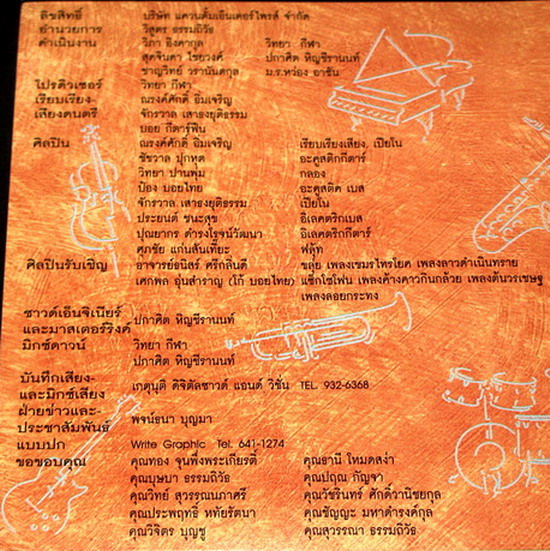 ลิขสิทธิ์ บริษัท แควนตั้มเอ็นเตอร์ไพรส์ จำกัด
อำนวยการ วิสูตร ธรรมถิวัธ
ดำเนินงาน วิภา อิงคากุล วิทยา กีฬา
สุดจินดา ไชยวงค์ ปกาศิต หิญชีรานนท์
ชาญวิทย์ วรานันตกุล ม.ร.หว่อง อาชัน
โปรดิวเซอร์ วิทยา กีฬา
เรียบเรียง- ณรงค์ศักดิ์ อิ่มเจริญ
เสียงดนตรี จักรวาล เสาธงยุติธรรม
บอย กีตาร์ฟีน
ศิลปิน ณรงค์ศักดิ์ อิ่มเจริญ เรียบเรียงเสียง, เปียโน
ชัชวาล ปุกหุต อะคูสติกกีตาร์
วิทยา ปานพุ่ม กลอง
ป้อง บอยไทย อะคูสติค เบส
จักรวาล เสาธงยุติธรรม เปียโน
ประยนต์ ชนะสุข อิเลคตริกเบส
ปุณยากร ดำรงโรจน์วัฒนา อิเลคตริกกีตาร์
ศุภชัย แก่นสันเทียะ ฟลุ้ท
ศิลปินรับเชิญ อาจารย์ธนิสร์ ศรีกลิ่นดี ขลุ่ย เพลงเขมรไทรโยค เพลงลาวดำเนินทราย
เศกพล อุ่นสำราญ (โก้ บอยไทย) แซ็กโซโฟน เพลงค้างคาวกินกล้วย เพลงต้นวรเชษฐ
เพลงลอยกระทง
ซาวด์เอ็นจิเนียร์ ปกาศิต หิญชีรานนท์
และมาสเตอร์ริงค์
มิกซ์ดาวน์ วิทยา กีฬา
ปกาศิต หิญชีรานนท์
บันทึกเสียง- เกตุนุติ ดิจิตัลซาวด์ แอนด์ วิชั่น TEL. 932-6368
และมิกซ์เสียง
ฝ่ายข่าวและ- พจน์ธนา บุญมา
ประชาสัมพันธ์
แบบปก Write Graphic Tel. 641-1274
ขอขอบคุณ คุณทอง จุนพึ่งพระเกียรติ์ คุณธานี โหมดสง่า
คุณบุษบา ธรรมถิวัธ คุณปกุณ กัญจา
คุณวิทย์ สุวรรณนภาศรี คุณวัชรินทร์ ศักดิ์วานิชยกุล
คุณประพฤทธิ์ หทัยรัตนา คุณชัญญะ มหาดำรงค์กุล
คุณวิจิตร บุญชู คุณสุวรรณา ธรรมถิวัธ